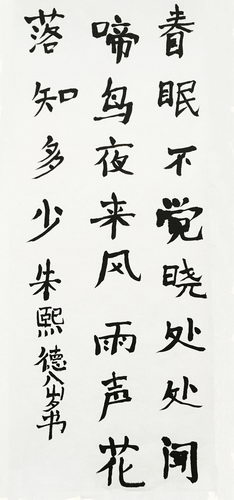 春眠不觉晓处处闻
啼鸟夜来风雨声花
落知多少朱熙德八岁书